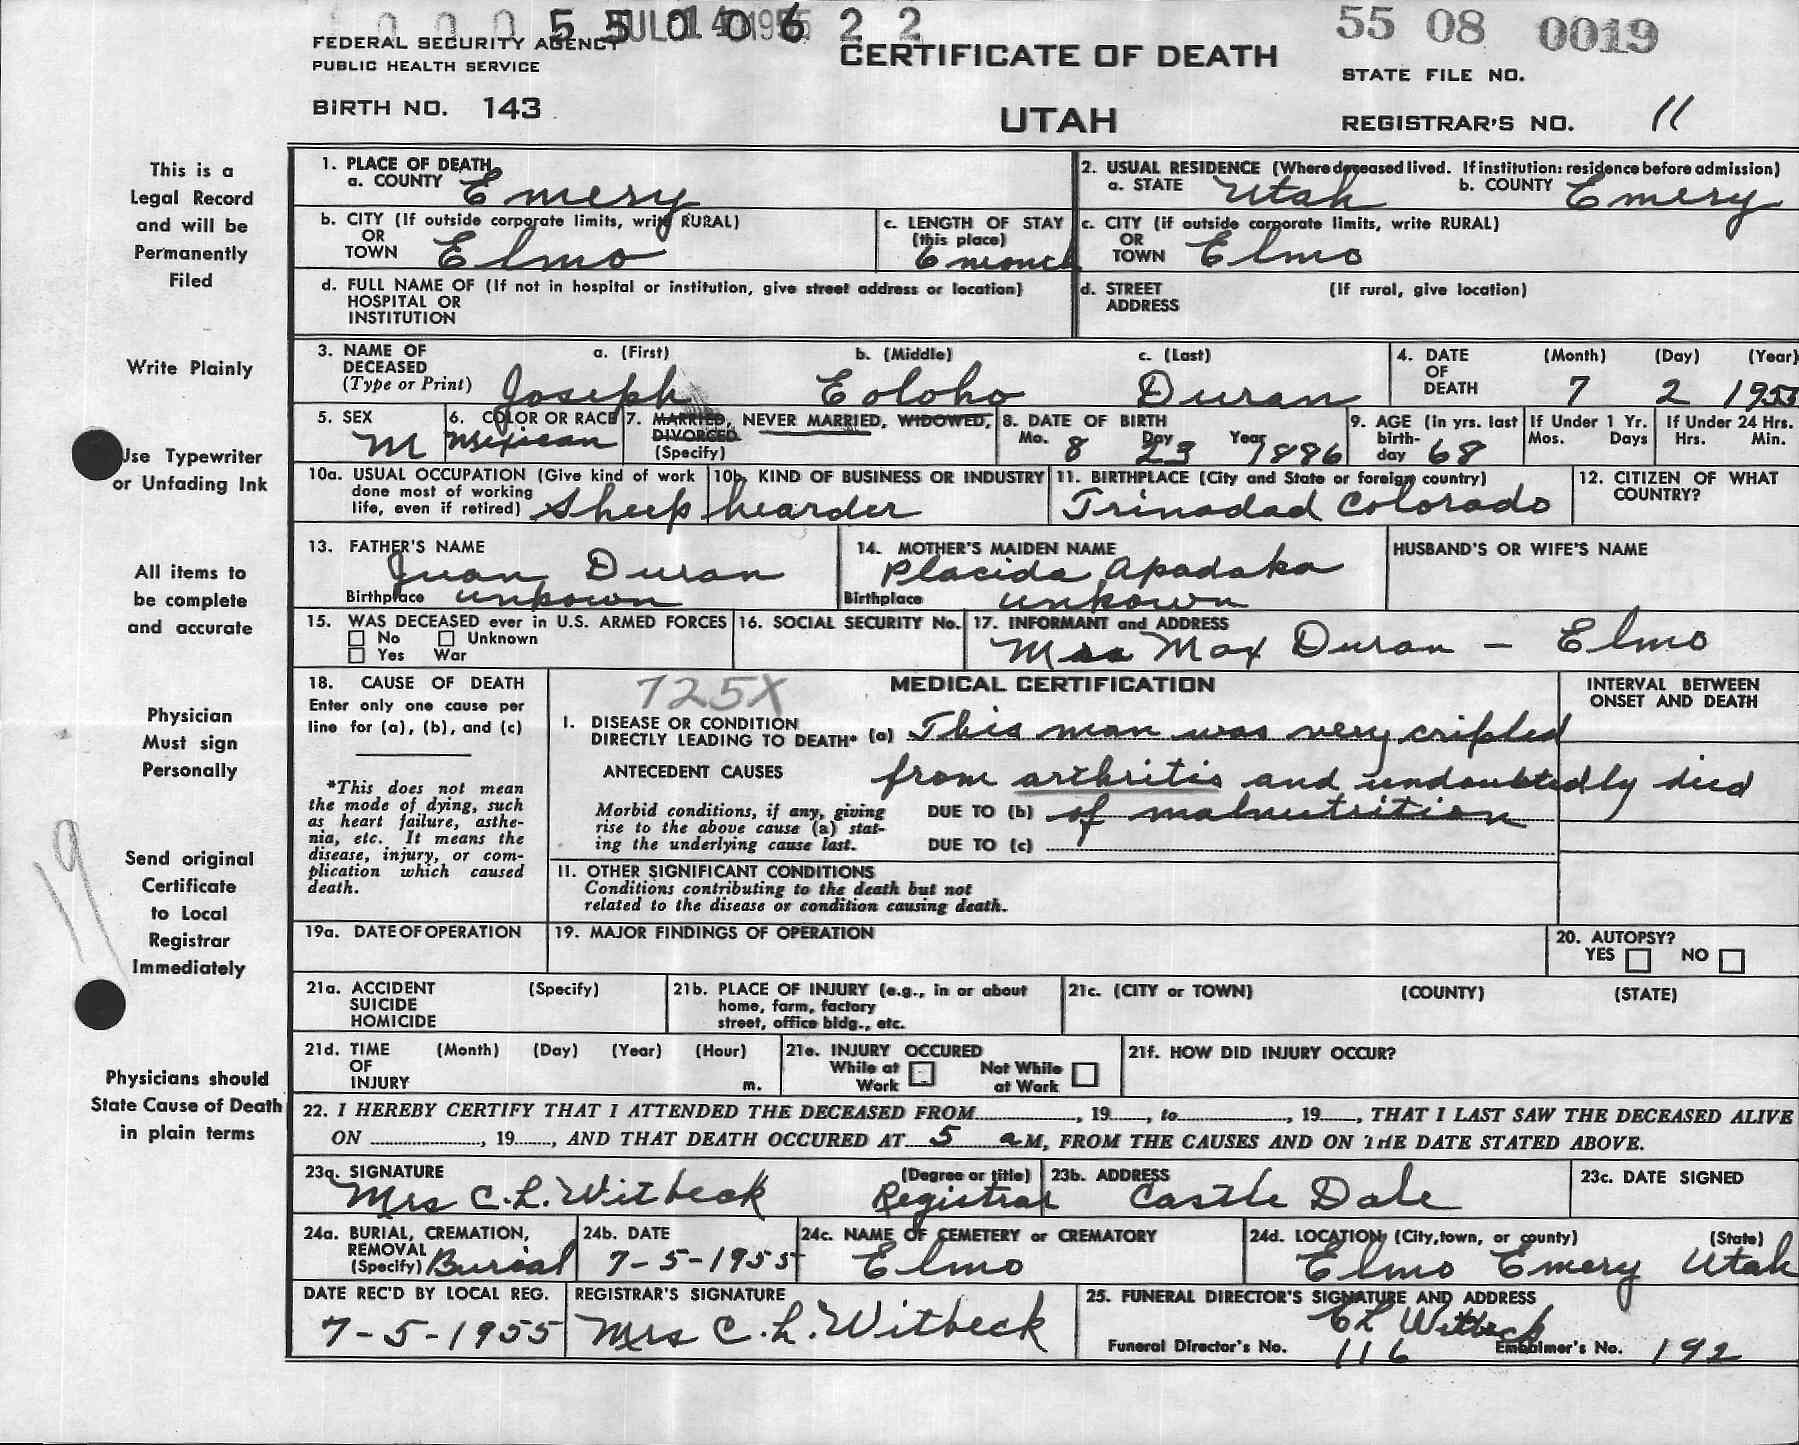 0 0 0 5 5 0 0 6 2 2
JUL 14 1955
55 08 0019
FEDERAL SECURITY AGENCY
PUBLIC HEALTH SERVICE
CERTIFICATE OF DEATH
STATE FILE NO.
BIRTH NO. 143
UTAH
REGISTRAR'S NO. 11
This is a
Legal Record
and will be
Permanently
Filed
Write Plainly
Use Typewriter
or Unfading Ink
All items to
be complete
and accurate
Physician
Must sign
Personally
Send original
Certificate
to Local
Registrar
Immediately
Physicians should
State Cause of Death
in plain terms
19
1. PLACE OF DEATH
a. COUNTY Emery
2. USUAL RESIDENCE (Where deceased lived. If institution: residence before admission)
a. STATE Utah b. COUNTY Emery
b. CITY (If outside corporate limits, write RURAL)
OR
TOWN Elmo
c. LENGTH OF STAY
(this place)
6 month
c. CITY (if outside corporate limits, write RURAL)
OR
TOWN Elmo
d. FULL NAME OF (If not in hospital or institution, give street address or location)
HOSPITAL OR
INSTITUTION
d. STREET (If rural, give location)
ADDRESS
3. NAME OF a. (First) b. (Middle) c. (Last)
DECEASED
(Type or Print) Joseph Eoloho Duran
4. DATE (Month) (Day) (Year)
OF
DEATH 7 2 1955
5. SEX
M
6. COLOR OR RACE
Mexican
7. MARRIED, NEVER MARRIED, WIDOWED,
DIVORCED
(Specify)
8. DATE OF BIRTH
Mo. 8 Day 23 Year 1886
9. AGE (in yrs. last
birth-
day 68
If Under 1 Yr.
Mos. Days
If Under 24 Hrs.
Hrs. Min.
10a. USUAL OCCUPATION (Give kind of work
done most of working
life, even if retired) Sheep hearder
10b. KIND OF BUSINESS OR INDUSTRY
11. BIRTHPLACE (City and State or foreign country)
Trinadad Colorado
12. CITIZEN OF WHAT
COUNTRY?
13. FATHER'S NAME
Juan Duran
Birthplace unkown
14. MOTHER'S MAIDEN NAME
Placida Apadaka
Birthplace unkown
HUSBAND'S OR WIFE'S NAME
15. WAS DECEASED ever in U.S. ARMED FORCES
No Unknown
Yes War
16. SOCIAL SECURITY No.
17. INFORMANT and ADDRESS
Mrs Max Duran - Elmo
18. CAUSE OF DEATH
Enter only one cause per
line for (a), (b), and (c)
*This does not mean
the mode of dying, such
as heart failure, asthe-
nia, etc. It means the
disease, injury, or com-
plication which caused
death.
725X
MEDICAL CERTIFICATION
INTERVAL BETWEEN
ONSET AND DEATH
I. DISEASE OR CONDITION
DIRECTLY LEADING TO DEATH* (a) This man was very cripled
ANTECEDENT CAUSES from arthritis and undoubtedly died
Morbid conditions, if any, giving DUE TO (b) of malnutrition
rise to the above cause (a) stat-
ing the underlying cause last. DUE TO (c)
11. OTHER SIGNIFICANT CONDITIONS
Conditions contributing to the death but not
related to the disease or condition causing death.
19a. DATE OF OPERATION
19. MAJOR FINDINGS OF OPERATION
20. AUTOPSY?
YES NO
21a. ACCIDENT (Specify)
SUICIDE
HOMICIDE
21b. PLACE OF INJURY (e.g., in or about
home, farm, factory
street, office bldg., etc.
21c. (CITY or TOWN) (COUNTY) (STATE)
21d. TIME (Month) (Day) (Year) (Hour)
OF
INJURY m.
21e. INJURY OCCURED
While at Not While
Work at Work
21f. HOW DID INJURY OCCUR?
22. I HEREBY CERTIFY THAT I ATTENDED THE DECEASED FROM, 19, to, 19, THAT I LAST SAW THE DECEASED ALIVE
ON, 19, AND THAT DEATH OCCURED AT 5 aM, FROM THE CAUSES AND ON THE DATE STATED ABOVE.
23a. SIGNATURE (Degree or title)
Mrs C. L. Witbeck Registrar
23b. ADDRESS
Castle Dale
23c. DATE SIGNED
24a. BURIAL, CREMATION,
REMOVAL
(Specify) Burial
24b. DATE
7-5-1955
24c. NAME OF CEMETERY or CREMATORY
Elmo
24d. LOCATION (City, town, or county) (State)
Elmo Emery Utah
DATE REC'D BY LOCAL REG.
7-5-1955
REGISTRAR'S SIGNATURE
Mrs C. L. Witbeck
25. FUNERAL DIRECTOR'S SIGNATURE AND ADDRESS
C L Witbeck
Funeral Director's No. 116 Embalmer's No. 192